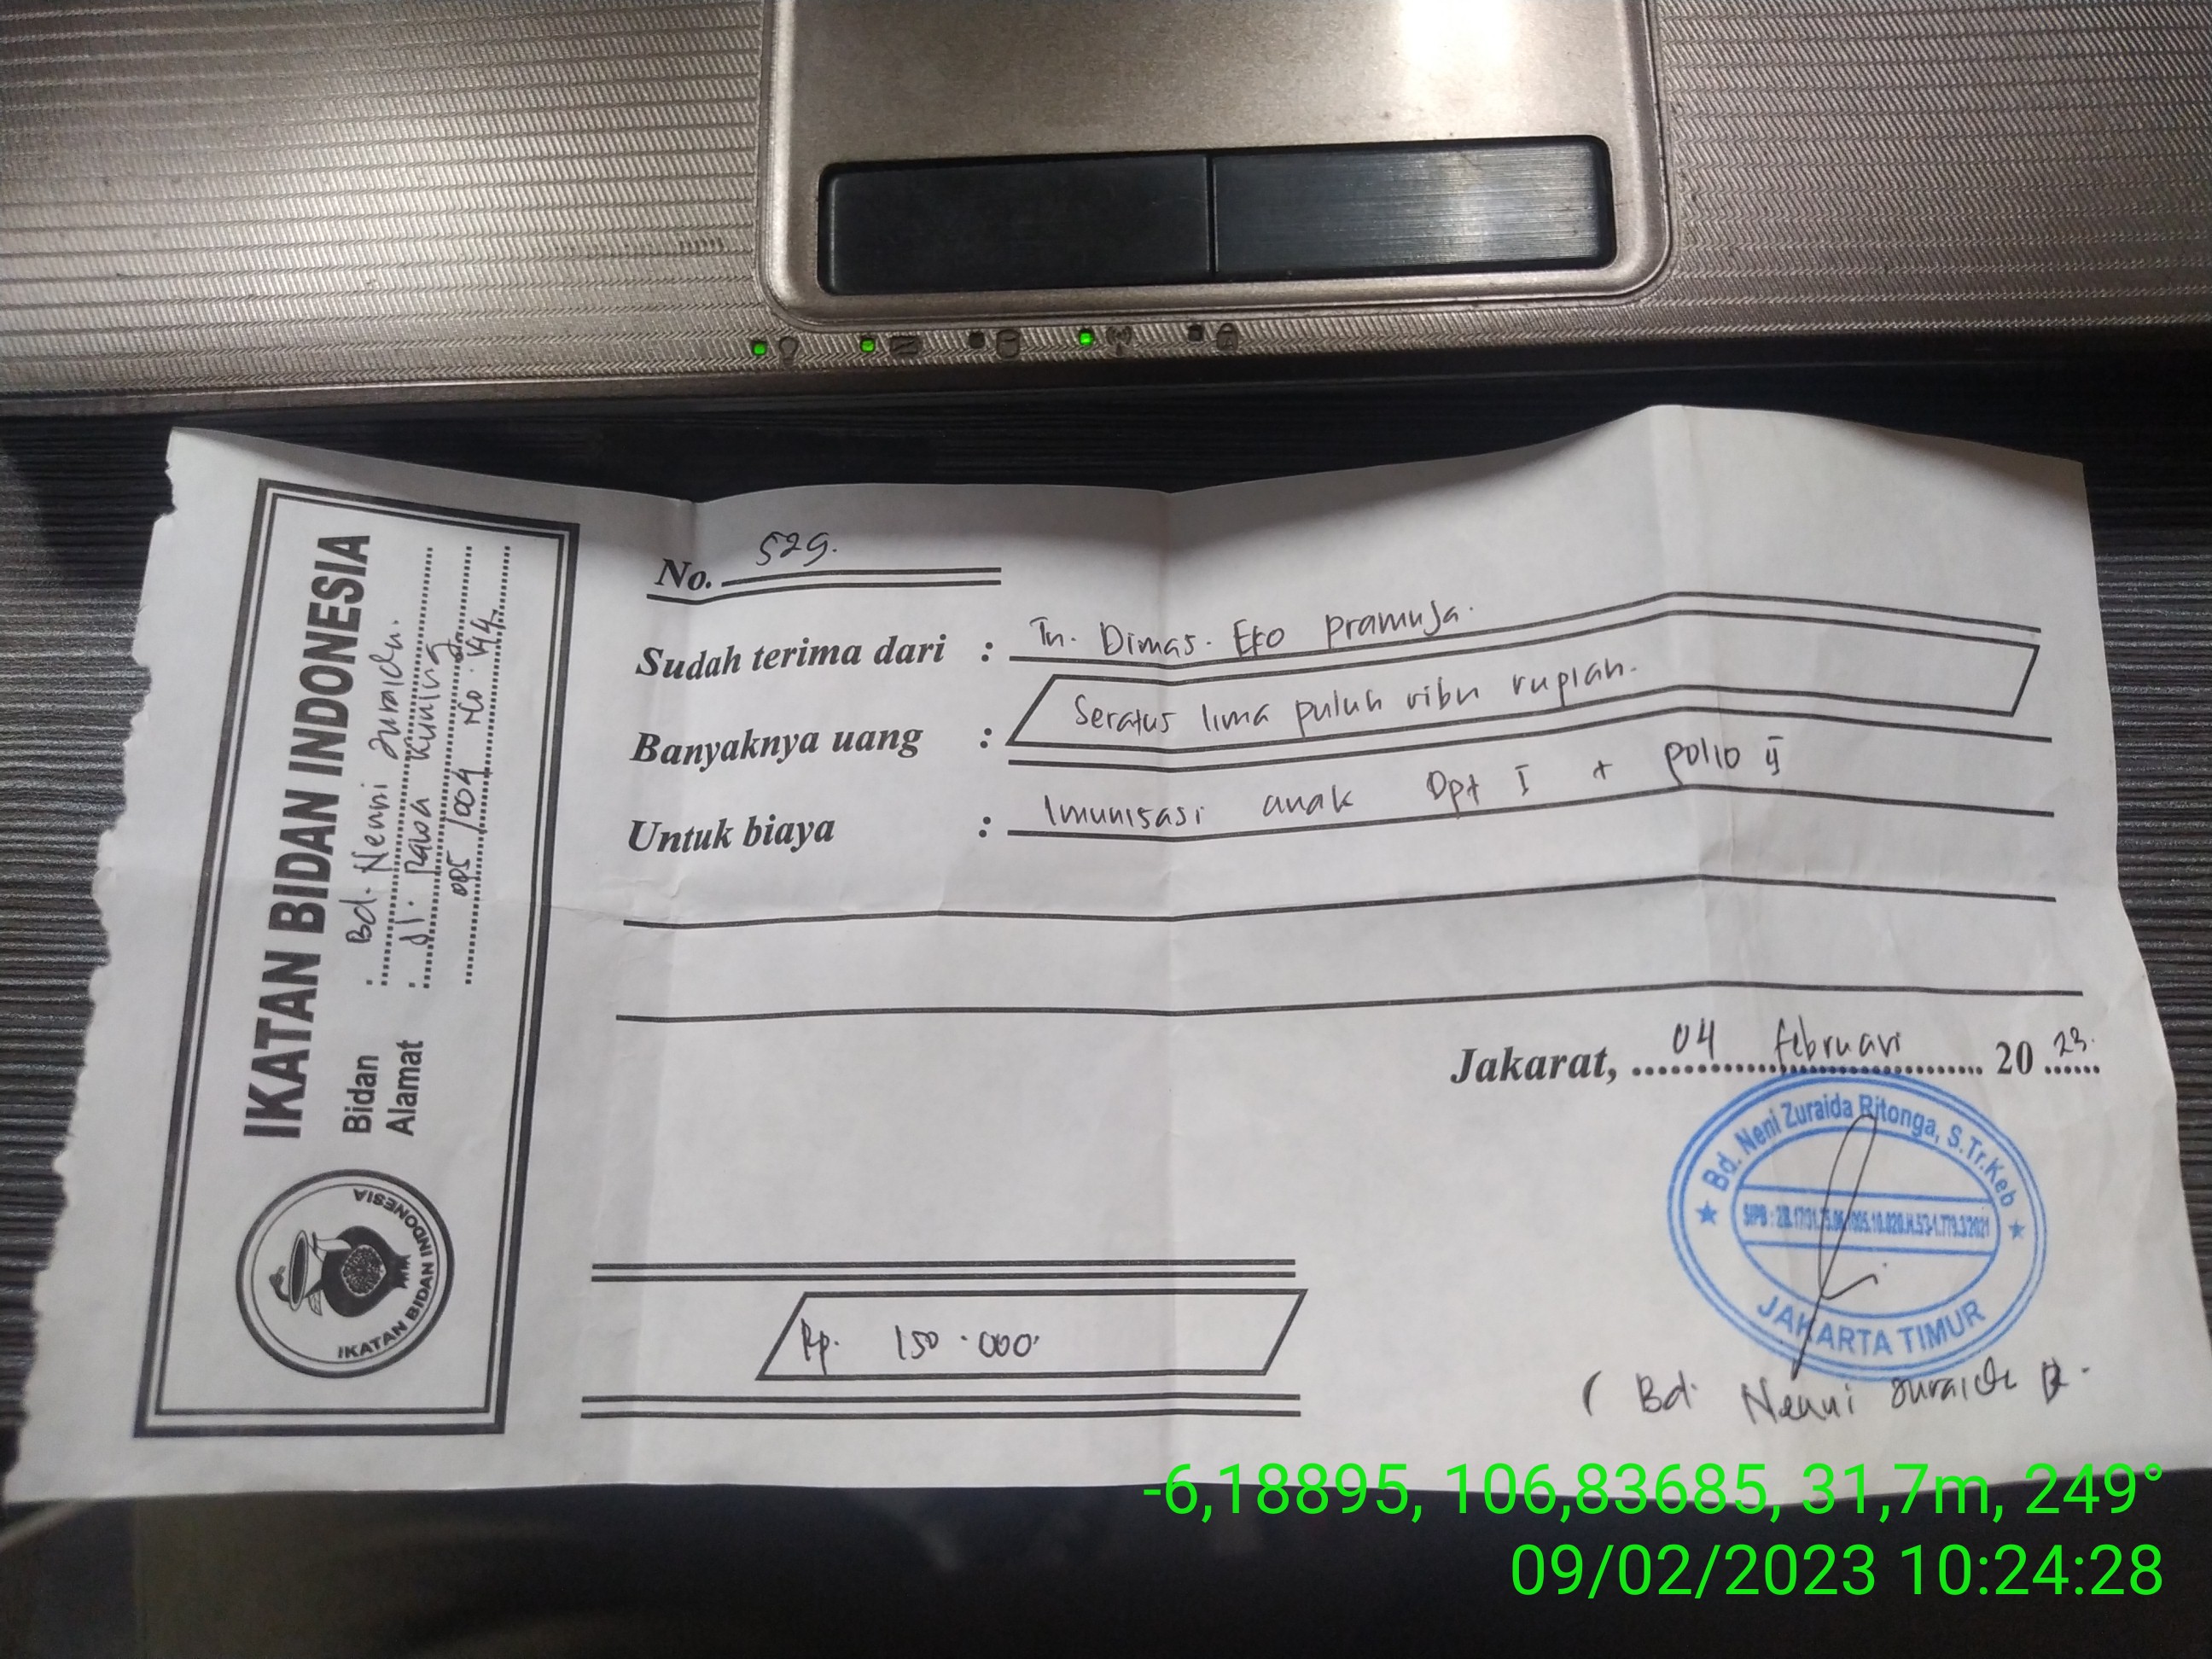 IKATAN BIDAN INDONESIA
Bidan : Bd. Nenni Zuraida.
Alamat : Jl. Rawa Kuning
005/004 No. 
IKATAN BIDAN INDONESIA
No. 529.
Sudah terima dari : Tn. Dimas. Eko pramuja.
Banyaknya uang : Seratus lima puluh ribu rupiah.
Untuk biaya : Imunisasi anak Dpt I + polio II
Jakarat, 04 februari 2023.
Bd. Neni Zuraida Ritonga, S.Tr.Keb
JAKARTA TIMUR
Rp. 150.000
( Bd. Nenni Zuraida R.
-6,18895, 106,83685, 31,7m, 249°
09/02/2023 10:24:28